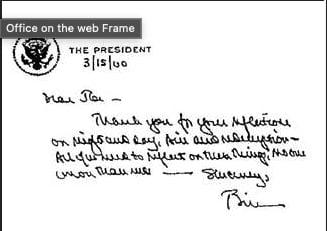 Office on the web Frame
THE PRESIDENT
3/15/00
Dear
Thank you for your reflections
on night and day, sin and redemption—
All of us need to reflect on these things, no one
more than me — Sincerely,
Bill